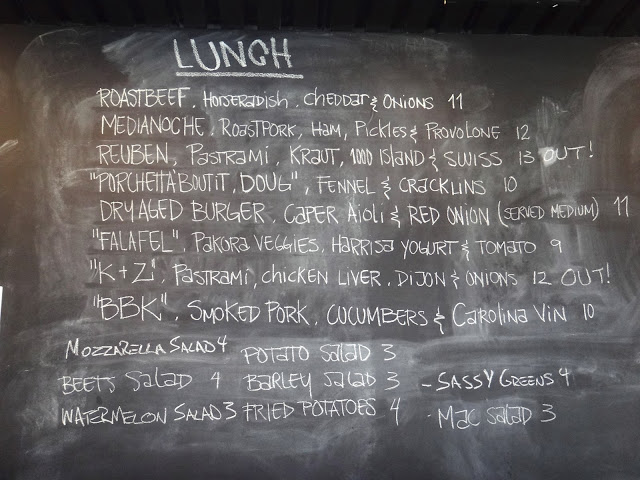 LUNCH
ROASTBEEF, HORSERADISH, CHEDDAR & ONIONS 11
MEDIANOCHE, ROASTPORK, HAM, PICKLES & PROVOLONE 12
REUBEN, PASTRAMI, KRAUT, 1000 ISLAND & SWISS 13 OUT!
"PORCHETTA'BOUTIT, DOUG", FENNEL & CRACKLINS 10
DRYAGED BURGER, CAPER AIOLI & RED ONION (SERVED MEDIUM) 11
"FALAFEL", PAKORA VEGGIES, HARRISA YOGURT & TOMATO 9
"K+Z", PASTRAMI, CHICKEN LIVER, DIJON & ONIONS 12 OUT!
"BBK", SMOKED PORK, CUCUMBERS & CAROLINA VIN 10
MOZZARELLA SALAD 4 POTATO SALAD 3
BEETS SALAD 4 BARLEY SALAD 3 - SASSY GREENS 4
WATERMELON SALAD 3 FRIED POTATOES 4 - MAC SALAD 3